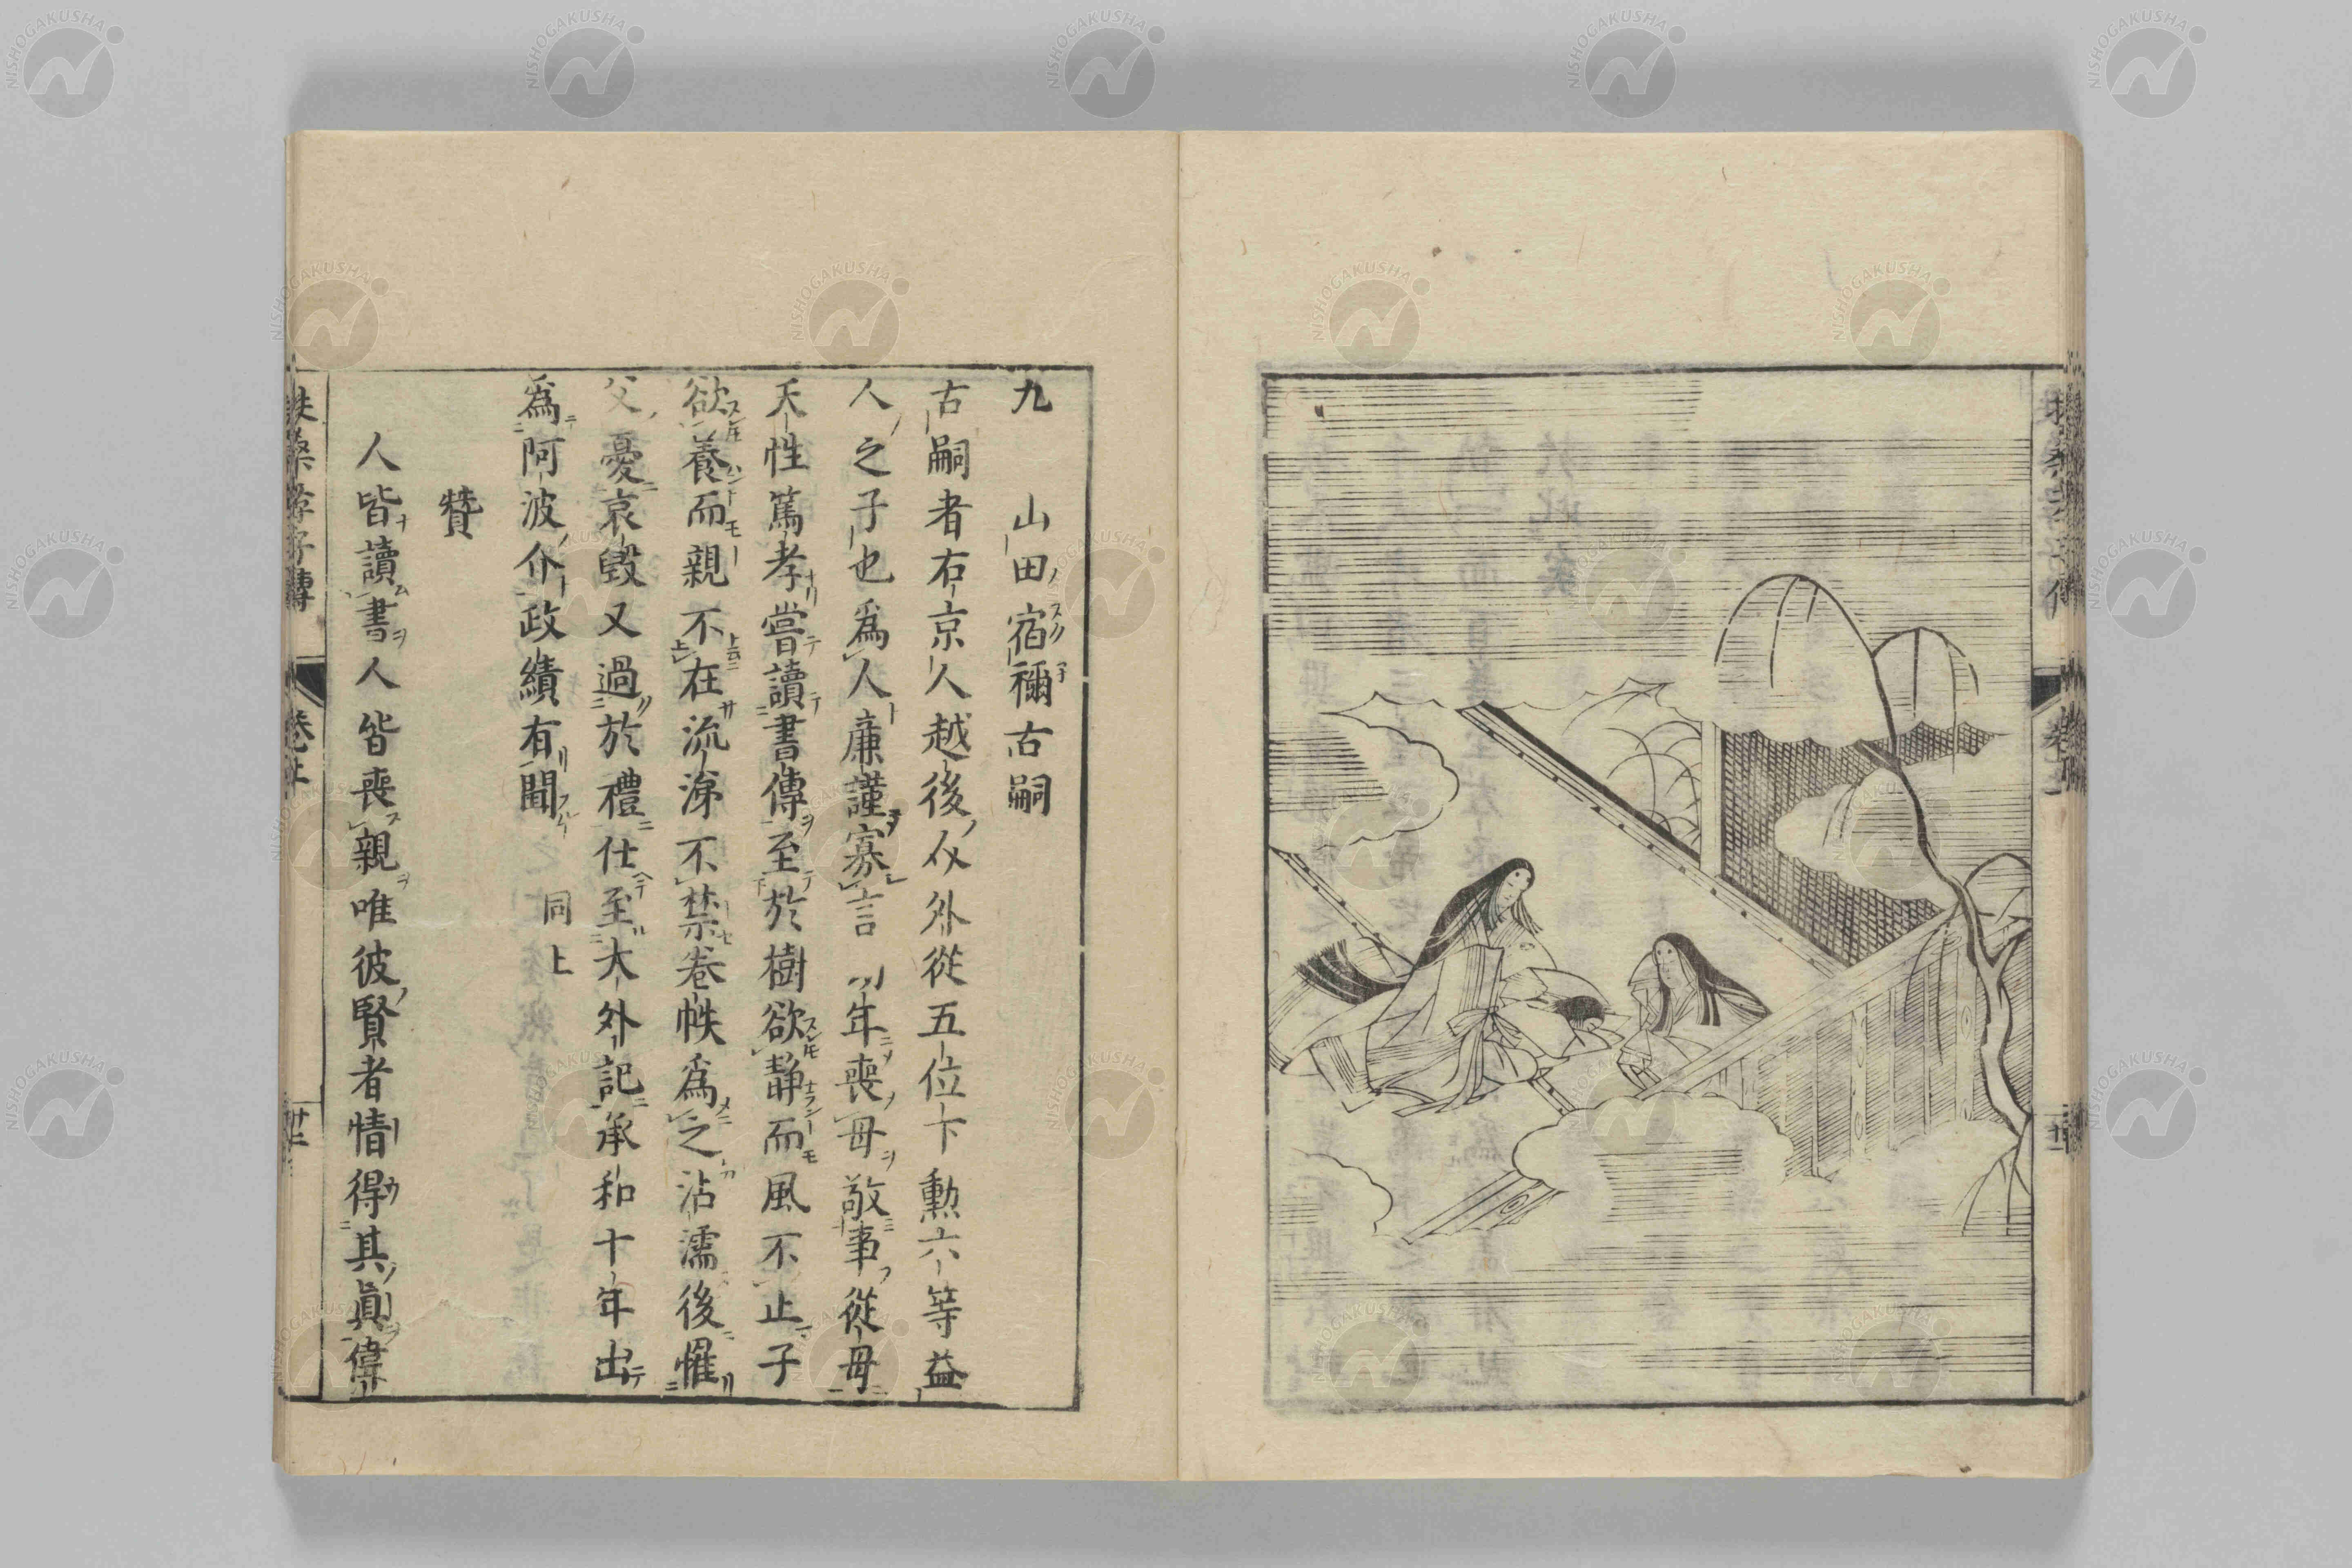 九 山田宿禰古嗣
古嗣者右京人越後介外從五位下勲六等益
人之子也爲人廉謹寡言 年喪母敬事從母
天性篤孝嘗讀書傳至於樹欲靜而風不止子
欲養而親不在流涕不禁卷帙爲之沾濡後罹
父憂哀毀又過於禮仕至大外記承和十年出
爲阿波介政績有聞 同上
贊
人皆讀書人皆喪親唯彼賢者情得其眞偉
扶桑孝子傳 卷上 廿二
NISHOGAKUSHA